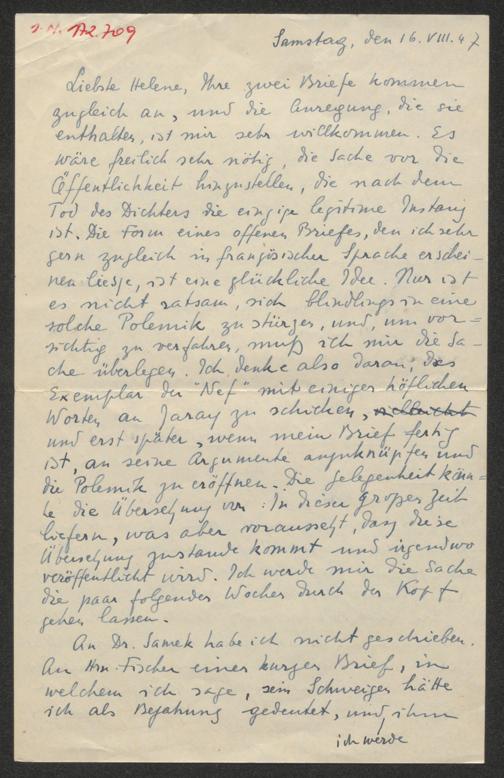 I.N. 172.709
Samstag, den 16. VIII. 47
Liebste Helene, Ihre zwei Briefe kommen
zugleich an, und die Anregung, die sie
enthalten, ist mir sehr willkommen. Es
wäre freilich sehr nötig, die Sache vor die
Öffentlichkeit hinzustellen, die nach dem
Tod des Dichters die einzige legitime Instanz
ist. Die Form eines offenen Briefes, den ich sehr
gern zugleich in französischer Sprache erschei-
nen liesse, ist eine glückliche Idee. Nur ist
es nicht ratsam, sich blindlings in eine
solche Polemik zu stürzen, und, um vor=
sichtig zu verfahren, muß ich mir die Sa-
che überlegen. Ich denke also daran, das
Exemplar der "Nef" mit einigen höflichen
Worten an Jaray zu schicken, vielleicht
und erst später, wenn mein Brief fertig
ist, an seine Argumente anzuknüpfen und
die Polemik zu eröffnen. Die Gelegenheit könn=
te die Übersetzung von: In dieser großen Zeit
liefern, was aber voraussetzt, dass diese
Übersetzung zustande kommt und irgendwo
veröffentlicht wird. Ich werde mir die Sache
die paar folgenden Wochen durch den Kopf
gehen lassen.
An Dr. Samek habe ich nicht geschrieben.
An Hrn. Fischer einen kurzen Brief, in
welchem ich sage, sein Schweigen hätte
ich als Bejahung gedeutet, und ihm
ich werde